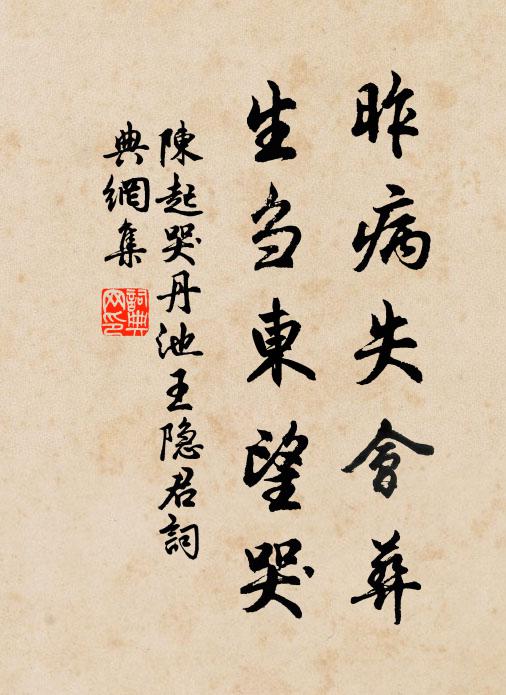 昨病失會葬
生刍東望哭
陳起哭丹池王隐君詞
典網集
詞典
网印